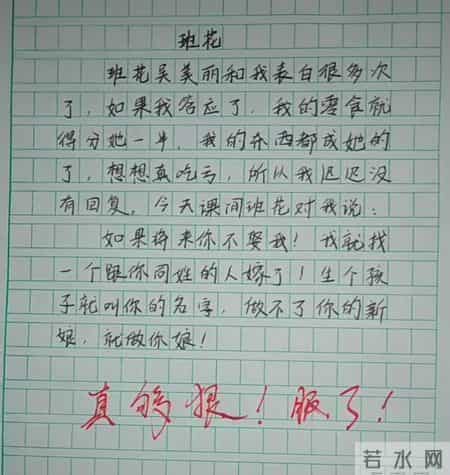 班花
班花吴美丽和我表白很多次
了，如果我答应了，我的零食就
得分她一半，我的东西都成她的
了，想想真吃亏，所以我迟迟没
有回复，今天课间班花对我说：
如果将来你不娶我！我就找
一个跟你同姓的人嫁了！生个孩
子就叫你的名字，做不了你的新
娘，就做你娘！
真够狠！服了！
若水网